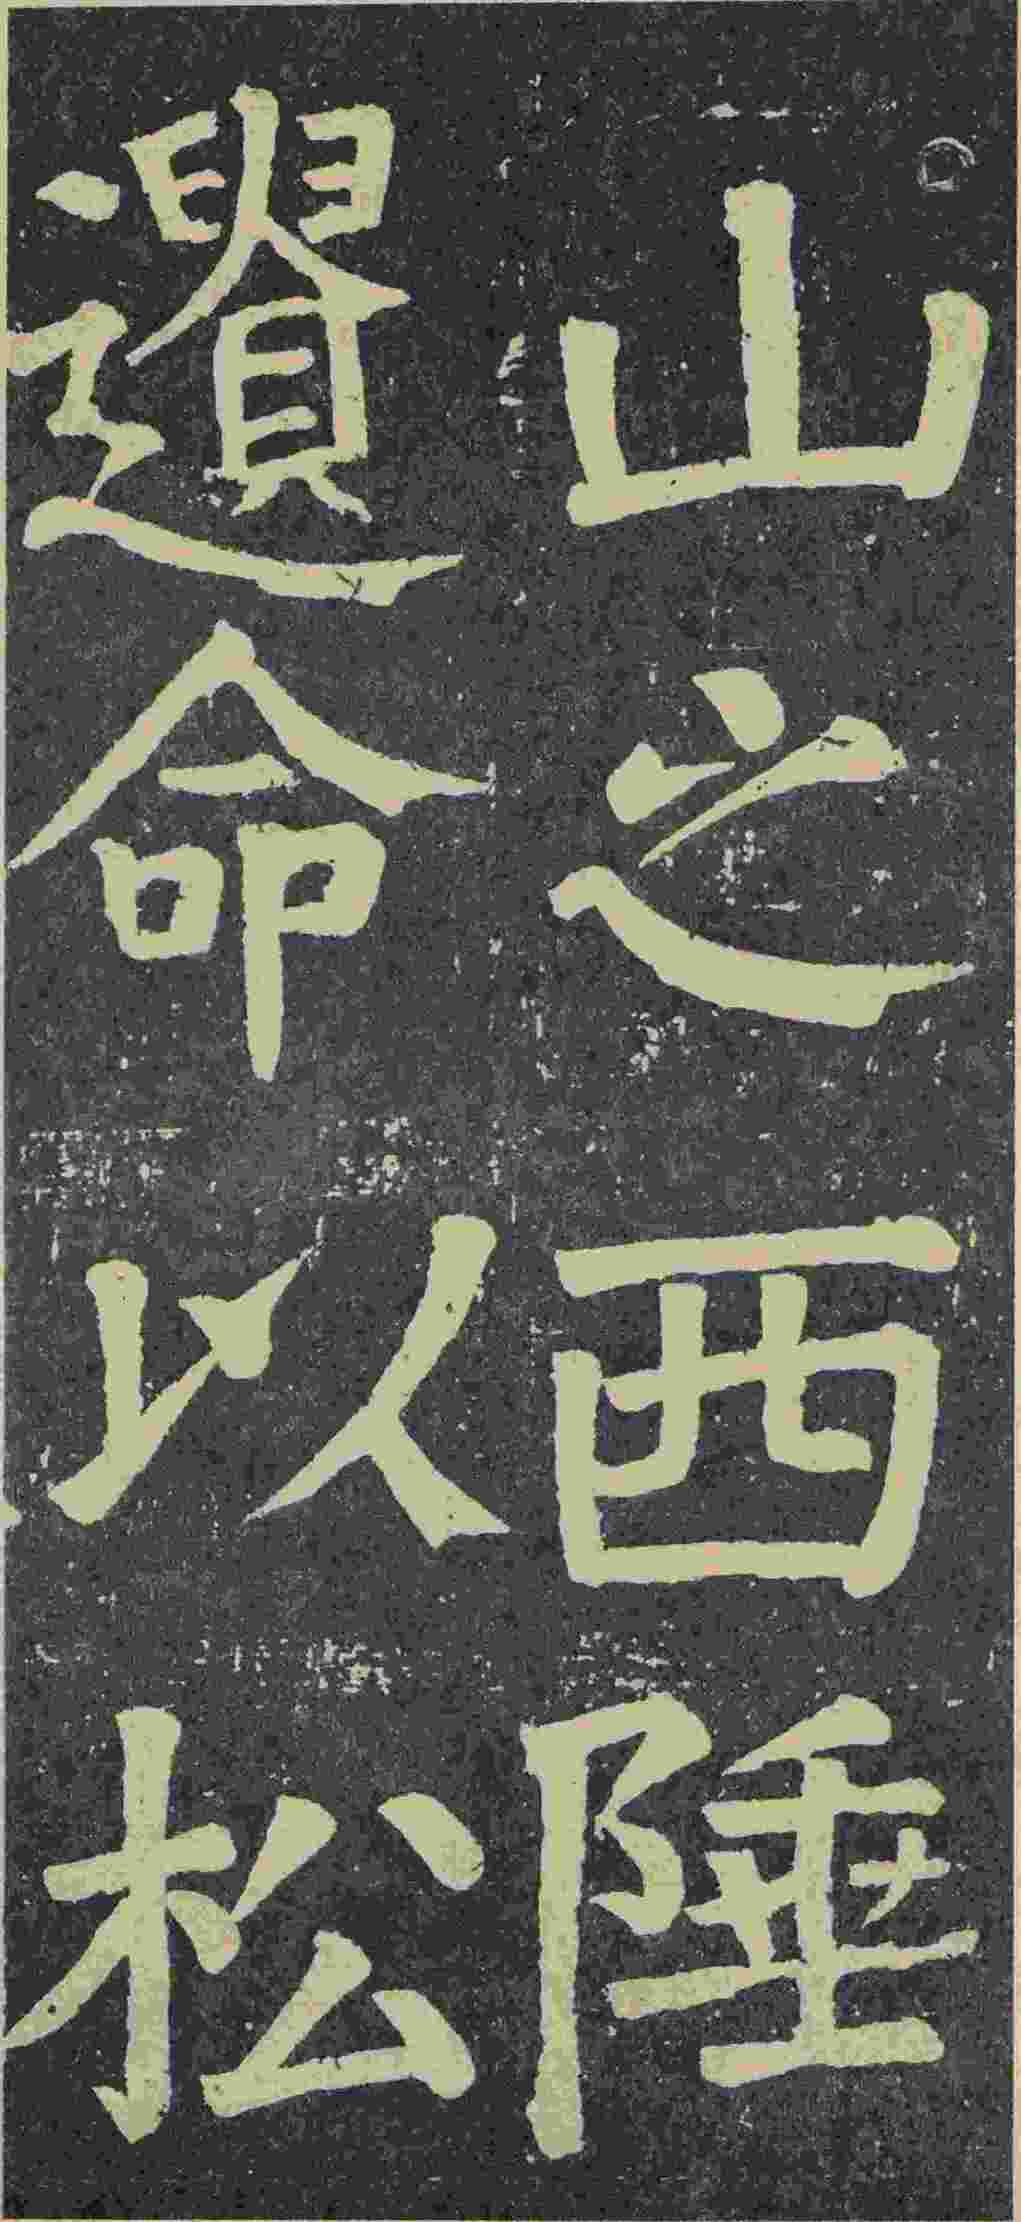 山之西陲
遺命以松